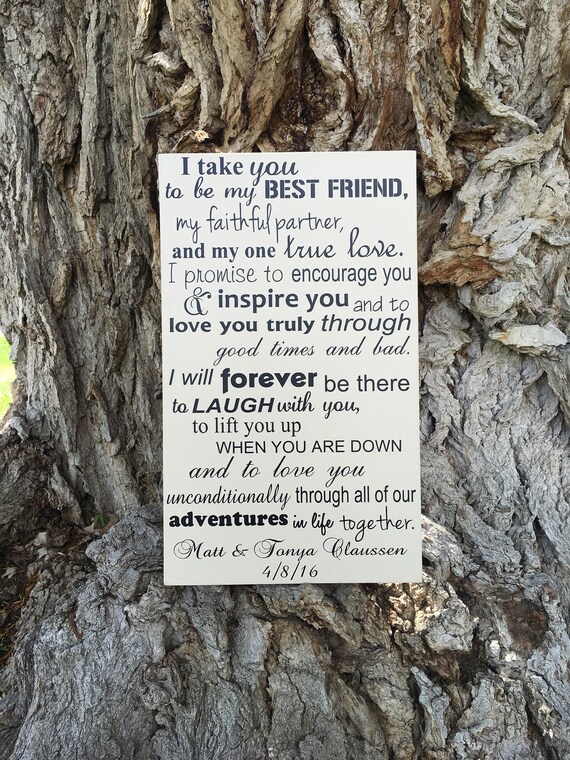 I take you
to be my BEST FRIEND,
my faithful partner,
and my one true love.
I promise to encourage you
& inspire you and to
love you truly through
good times and bad.
I will forever be there
to LAUGH with you,
to lift you up
WHEN YOU ARE DOWN
and to love you
unconditionally through all of our
adventures in life together.
Matt & Tonya Claussen
4/8/16